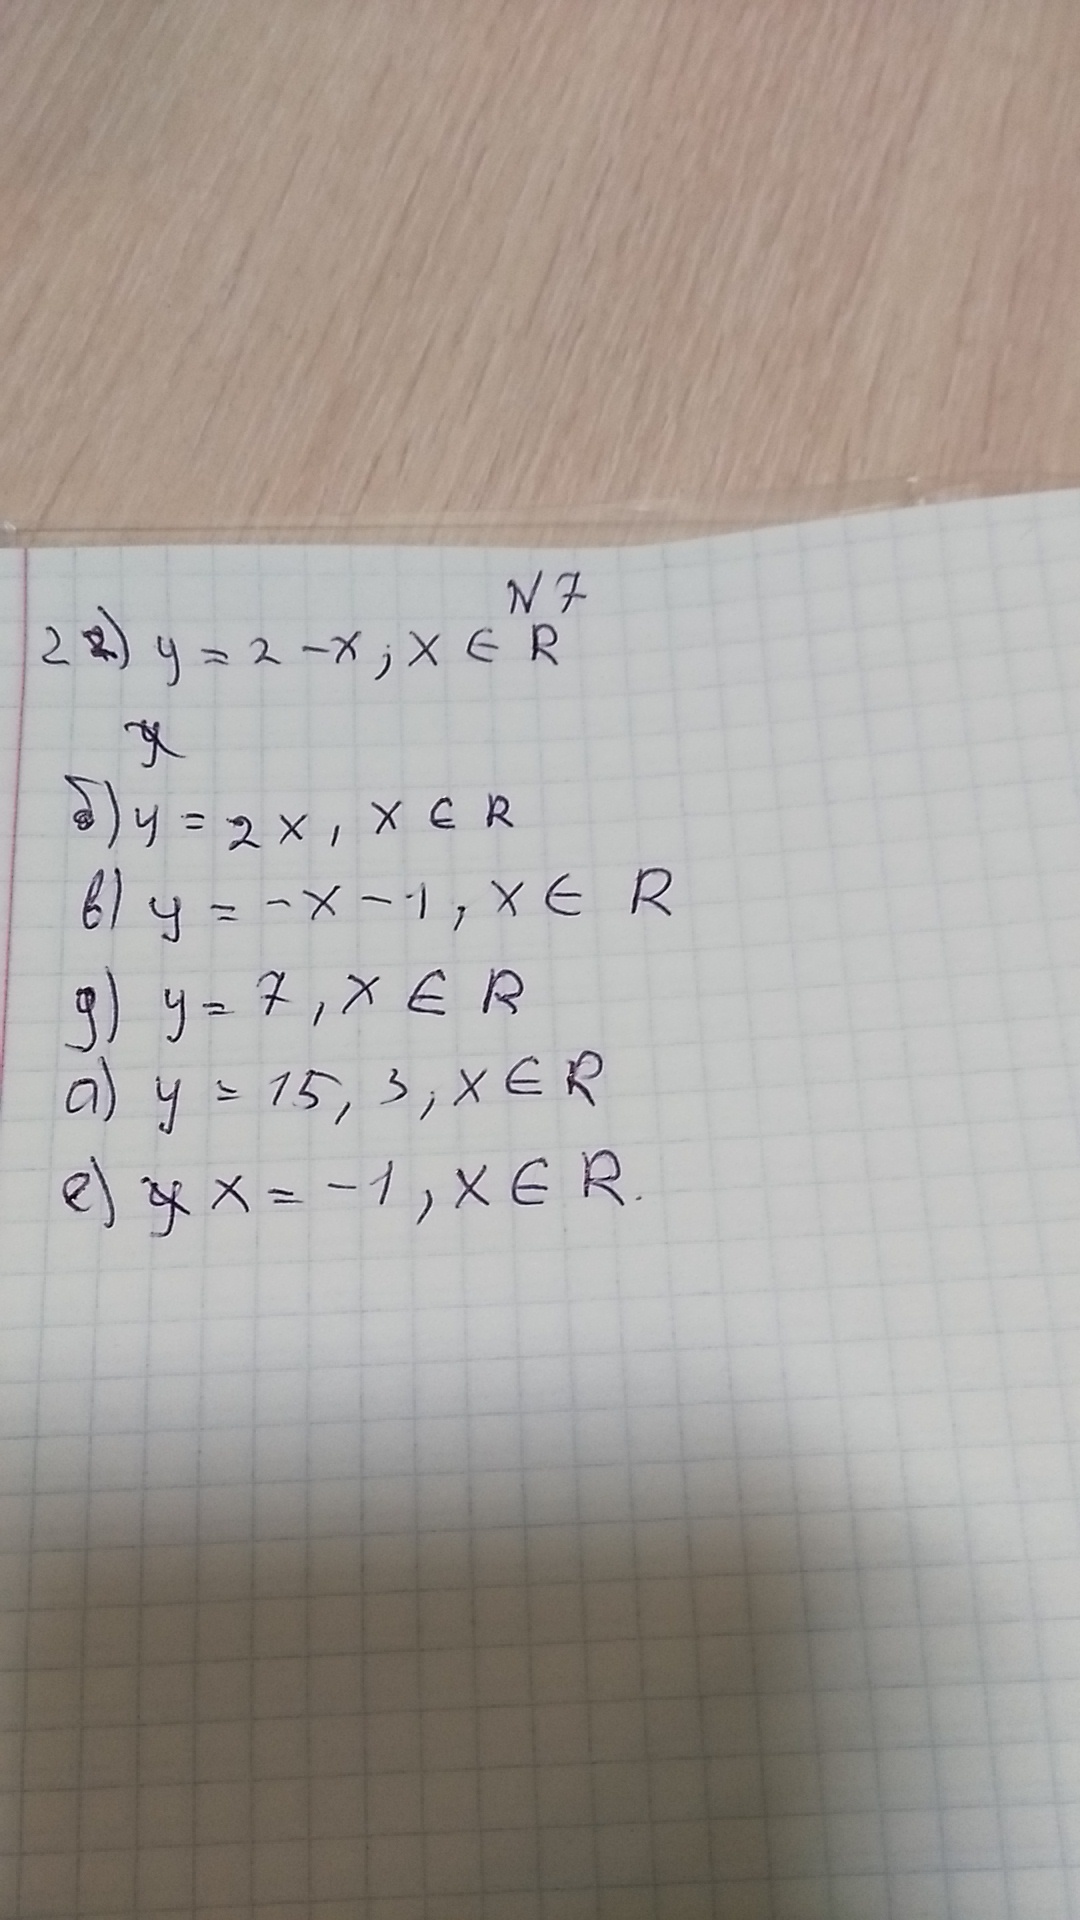 N 7
2 г) y = 2 - x; x ∈ R
б) y = 2x, x ∈ R
в) y = -x - 1, x ∈ R
д) y = 7, x ∈ R
а) y = 15, 3, x ∈ R
е) x = -1, x ∈ R.